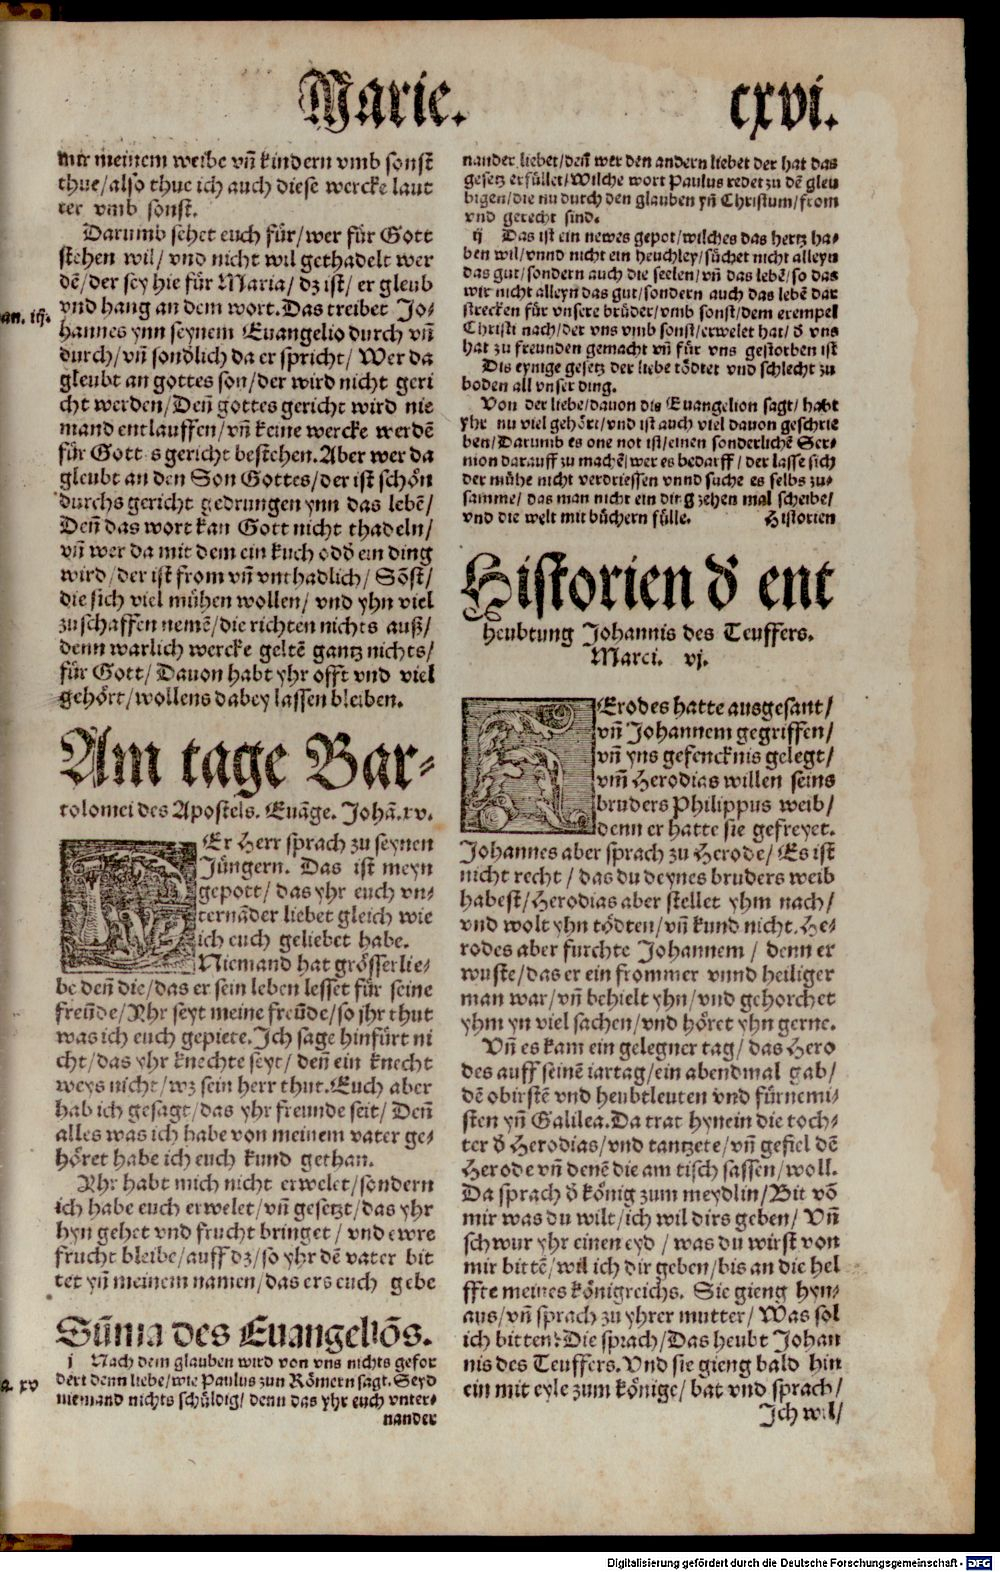 Marie. cxvi.
mir meinem weibe vñ kindern vmb sonst
thue/also thue ich auch diese wercke laut
ter vmb sonst.
Darumb sehet euch für/wer für Gott
stehen wil/ vnd nicht wil gethadelt wer
dē/der sey hie für Maria/ dz ist/ er gleub
vnd hang an dem wort. Das treibet Jo-
an. iij.
hannes ynn seynem Euangelio durch vñ
durch/vñ sondlich da er spricht/ Wer da
gleubt an gottes son/der wird nicht geri
cht werden/Deñ gottes gericht wird nie
mand entlauffen/vñ keine wercke werdē
für Gott s gericht bestehen. Aber wer da
gleubt an den Son Gottes/der ist schön
durchs gericht gedrungen ynn das lebē/
Deñ das wort kan Gott nicht thadeln/
vñ wer da mit dem ein kuch odð ein ding
wird/der ist from vñ vnthadlich/ Sōst/
die sich viel mühen wollen/ vnd yhn viel
zuschaffen nemē/die richten nichts auß/
denn warlich wercke geltē gantz nichts/
für Gott/ Dauon habt yhr offt vnd viel
gehört/wollens dabey lassen bleiben.
Am tage Bar-
tolomei des Apostels. Euāge. Johā.xv.
Er Herr sprach zu seynen
Jüngern. Das ist meyn
gepott/ das yhr euch vn-
ternāder liebet gleich wie
ich euch geliebet habe.
Niemand hat grösser lie-
be deñ die/das er sein leben lesset für seine
freūde/Yhr seyt meine freūde/so jhr thut
was ich euch gepiete. Ich sage hinfürt ni
cht/das yhr knechte seyt/ deñ ein knecht
weys nicht/wz sein herr thut. Euch aber
hab ich gesagt/das yhr freunde seit/ Deñ
alles was ich habe von meinem vater ge-
höret habe ich euch kund gethan.
Yhr habt mich nicht erwelet/sondern
ich habe euch erwelet/vñ gesetzt/das yhr
hyn gehet vnd frucht bringet/ vnd ewre
frucht bleibe/auff dz/so yhr dē vater bit
tet yñ meinem namen/das ers euch gebe
Sūma des Euangeliōs.
j Nach dem glauben wird von vns nichts gefor
dert denn liebe/wie Paulus zun Römern sagt. Seyd
xv
niemand nichts schüldig/ denn das yhr euch vnter-
nander
nander liebet/deñ wer den andern liebet der hat das
gesetz erfüllet/Wilche wort Paulus redet zu dē gleu
bigen/die nu durch den glauben yñ Christum/from
vnd gerecht sind.
ij Das ist ein newes gepot/wilches das hertz ha-
ben wil/vnnd nicht ein heuchley/süchet nicht alleyn
das gut/sondern auch die seelen/vñ das lebē/so das
wir nicht alleyn das gut/sondern auch das lebē dar
strecken für vnsere brüder/vmb sonst/dem exempel
Christi nach/der vns vmb sonst/erwelet hat/ð vns
hat zu freunden gemacht vñ für vns gestorben ist
Dis eynige gesetz der liebe tödtet vnd schlecht zu
boden all vnser ding.
Von der liebe/dauon dis Euangelion sagt/ habt
yhr nu viel gehört/vnd ist auch viel dauon geschrie
ben/Darumb es one not ist/einen sonderlichē Ser-
mon darauff zu machē/wer es bedarff/ der lasse sich
der mühe nicht verdriessen vnnd suche es selbs zu-
samme/ das man nicht ein ding zehen mal scheibe/
vnd die welt mit büchern fülle. Historien
Historien ð ent
heubtung Johannis des Teuffers.
Marci. vj.
HErodes hatte ausgesant/
vñ Johannem gegriffen/
vñ yns gefencknis gelegt/
vm̄ Herodias willen seins
bruders Philippus weib/
denn er hatte sie gefreyet.
Johannes aber sprach zu Herode/ Es ist
nicht recht/ das du deynes bruders weib
habest/Herodias aber stellet yhm nach/
vnd wolt yhn tödten/vñ kund nicht. He-
rodes aber furchte Johannem/ denn er
wuste/das er ein frommer vnnd heiliger
man war/vñ behielt yhn/vnd gehorchet
yhm yn viel sachen/vnd höret yhn gerne.
Vñ es kam ein gelegner tag/ das Hero
des auff seinē iartag/ein abendmal gab/
dē obirstē vnd heubtleuten vnd fürnemi-
sten yñ Galilea. Da trat hynein die toch-
ter ð Herodias/vnd tantzete/vñ gefiel dē
Herode vñ denē die am tisch sassen/woll.
Da sprach ð könig zum meydlin/Bit võ
mir was du wilt/ich wil dirs geben/ Vñ
schwur yhr einen eyd/ was du wirst von
mir bittē/wil ich dir geben/bis an die hel
ffte meines königreichs. Sie gieng hyn-
aus/vñ sprach zu yhrer mutter/ Was sol
ich bitten? Die sprach/Das heubt Johan
nis des Teuffers. Vnd sie gieng bald hin
ein mit eyle zum könige/ bat vnd sprach/
Ich wil/
Digitalisierung gefördert durch die Deutsche Forschungsgemeinschaft - DFG